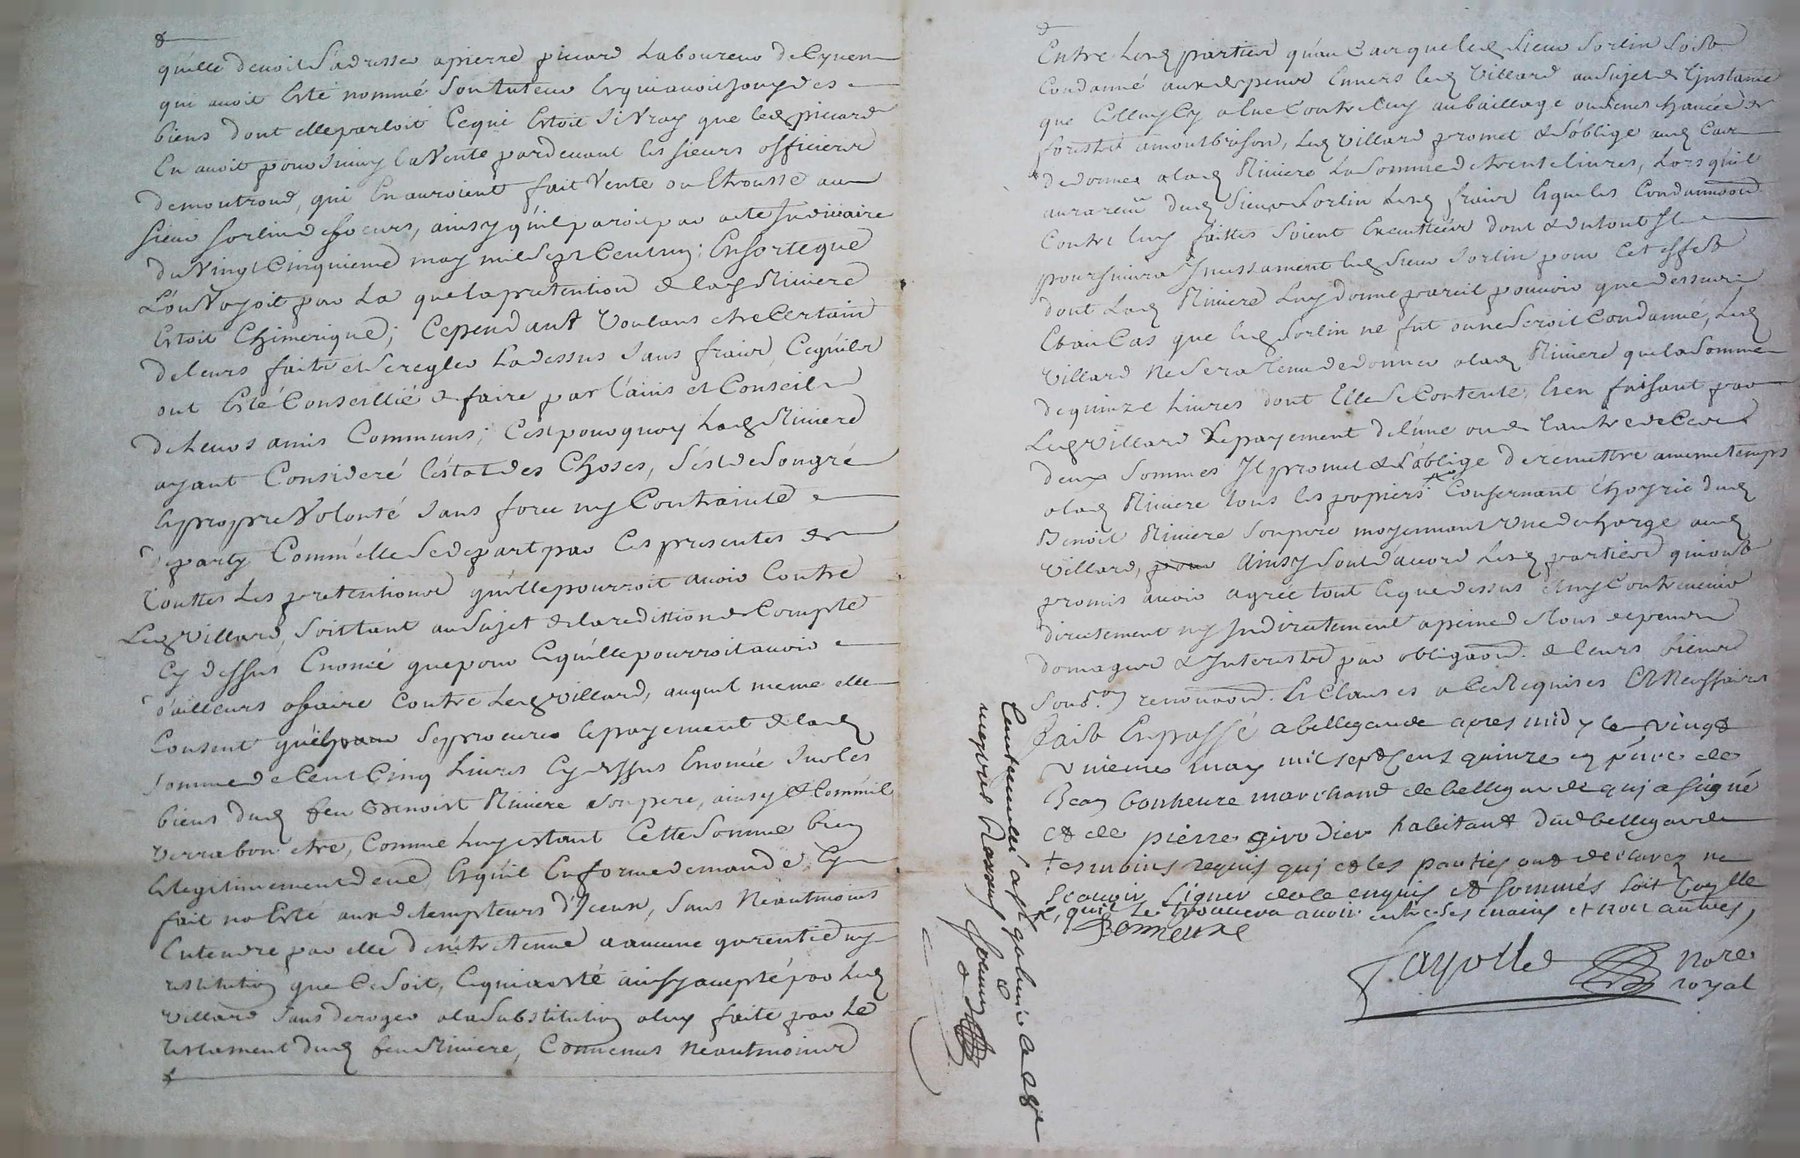 qu'elle devoit s'adresser a pierre picard Laboureur de
qui avoit Esté nommé son tuteur Et qui avoit jouy des
biens dont elle parloit Ce qui Estoit si vray que led picard
En avoit poursuivy la vente pardevant les sieurs officiers
de montrond, qui En auroient fait vente ou Etrousse au
sieur sorlin, ainsy qu'il paroit par acte Judiciaire
du vingt Cinquieme may mil sept Cent ; En sorte que
l'on voyoit par La que la pretention de lad Riviere
Estoit Chimerique; Cependant voulans etre Certain
de leurs faits et se regler La dessus sans frais, Ce qu'ils
ont Esté Conseillié de faire par l'avis et Conseil
de Leurs amis Communs; C'est pourquoy Lad Riviere
ayant Consideré l'estat des Choses, s'est de son gré
Et propre volonté sans force ny Contrainte
departy Comm'elle se depart par Ces presentes de
touttes Les pretentions qu'elle pourroit avoir Contre
Led villard, soit tant au sujet de la reddition de Compte
Cy dessus Enoncé que pour Ce qu'elle pourroit avoir
d'ailleurs affaire Contre Led villard, auquel meme elle
Consent qu'il se procure le payement de lad
somme de Cent Cinq Livres Cy dessus Enoncée sur les
biens dud feu Benoist Riviere son pere, ainsy & Comm'il
verra bon etre, Comme luy estant Cette somme bien
Et legitimement deue, Et qu'il En forme demande, Et
fait notifié aux detempteurs d'Iceux, sans Neautmoins
Entendre par elle d'etre tenue a aucune garentie ny
restitution que Ce soit, Ce qui a esté ainsy accepté par Led
villard sans deroger a la substitution a luy faite par Le
testament dud feu Riviere, Convenus Neautmoins
Entre Lesd parties qu'au Cas que led sieur sorlin soit
Condamné aux depens Envers led villard au sujet de l'Instance
que Celluy Cy a Eue Contre luy au baillage
forests a montbrison, Led villard promet & s'oblige aud Cas
de donner a lad Riviere La somme de trente livres, Lors qu'il
aura receu dud sieur sorlin Lesd frais Et que les Condamnaons
Contre luy faittes soient Executtées dont & du tout Il
poursuivra Incessament led sieur sorlin pour Cet effect
dont Lad Riviere Luy donne pareil pouvoir que dessus;
Et au Cas que led sorlin ne fut ou ne seroit Condamné, Led
villard Ne sera tenu de donner a lad Riviere que la somme
de quinze Livres dont Elle se Contente, Et en faisant par
Led villard Le payement de l'une ou de l'autre de Ces
deux sommes Il promet & s'oblige de remettre au meme temps
a lad Riviere tous les papiers Consernant l'hoyrie dud
Benoit Riviere son pere moyennant une decharge aud
villard, ainsy sont d'accord Lesd parties qui ont
promis avoir agréé tout Ce que dessus Et ny Contrevenir
directement ny Indirectement a peine de tous depens
domages & Interests par obligaon de leurs biens
soub.on renonaon. Et Clauses a Ce Requises Et Necessaires
fait Et passé a bellegarde apres midy le vingt
unieme may mil sept Cens quinze en p'nce de
Jean bonheure marchand de bellegarde qui a signé
et de pierre girodier habitant dud bellegarde
tesmoins requis qui et les parties ont declarez ne
scavoir signer de ce enquis et sommés soit
qu'il se trouvera avoir entre ses mains et non autres,
Bonneure
fayolle Nore
royal